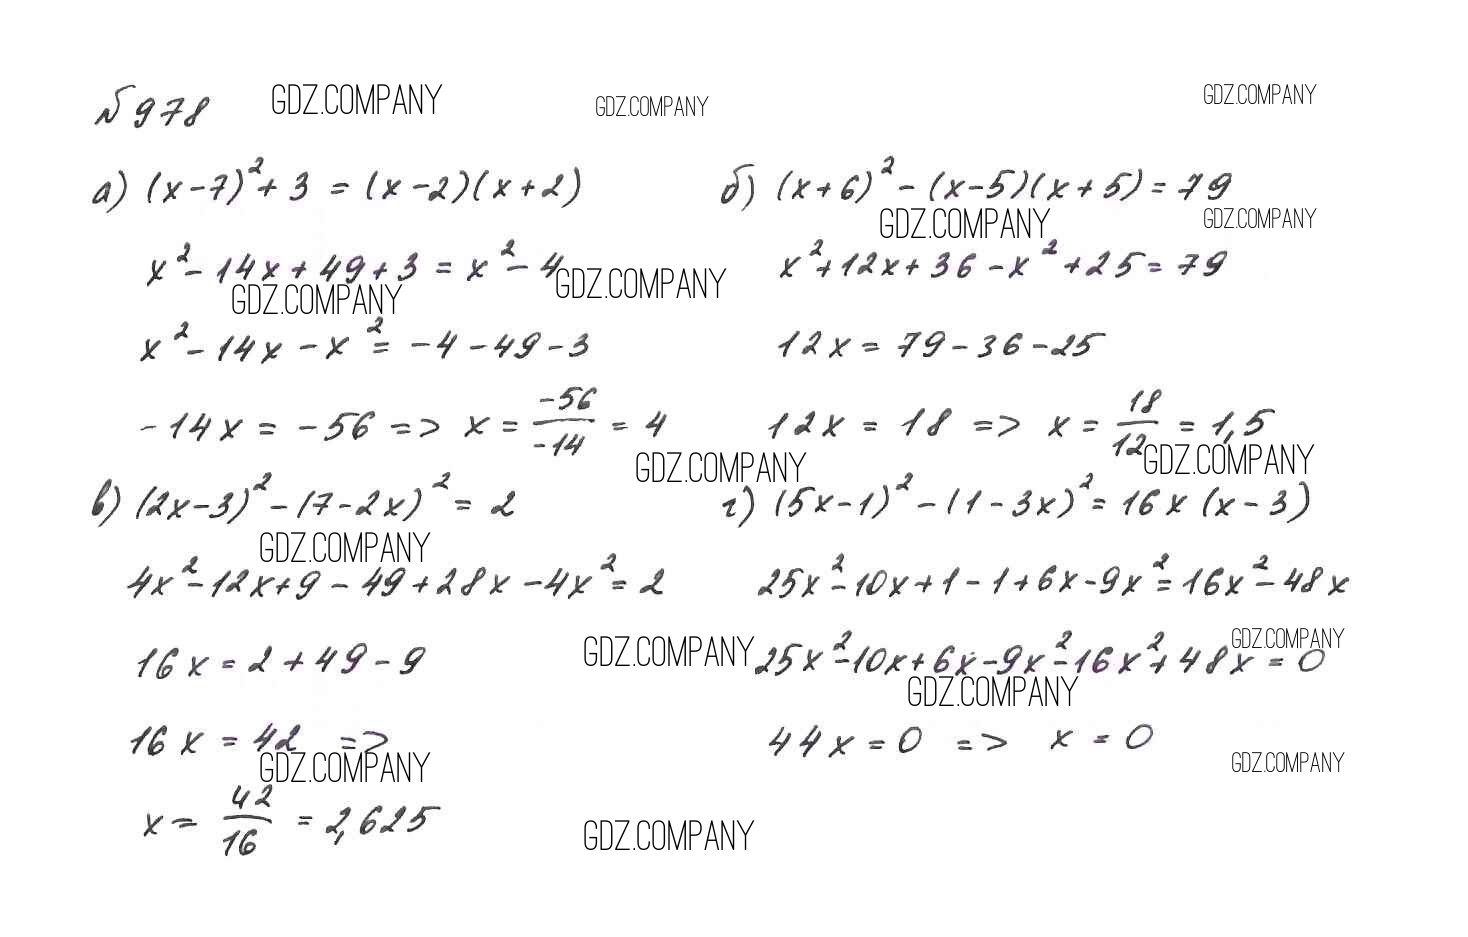 №978 GDZ.COMPANY GDZ.COMPANY GDZ.COMPANY
а) (x-7)²+3 = (x-2)(x+2)
x²-14x+49+3 = x²-4 GDZ.COMPANY
GDZ.COMPANY
x²-14x-x² = -4-49-3
-14x = -56 => x = -56/-14 = 4
GDZ.COMPANY
б) (x+6)² - (x-5)(x+5) = 79
GDZ.COMPANY GDZ.COMPANY
x²+12x+36-x²+25=79
12x = 79-36-25
12x = 18 => x = 18/12 = 1,5
GDZ.COMPANY
в) (2x-3)²-(7-2x)² = 2
GDZ.COMPANY
4x²-12x+9-49+28x-4x²=2
16x=2+49-9
GDZ.COMPANY
16x = 42 =>
GDZ.COMPANY
x = 42/16 = 2,625
GDZ.COMPANY
г) (5x-1)²-(1-3x)²=16x(x-3)
25x²-10x+1-1+6x-9x²=16x²-48x
GDZ.COMPANY
25x²-10x+6x-9x²-16x²+48x=0
GDZ.COMPANY
44x=0 => x=0
GDZ.COMPANY